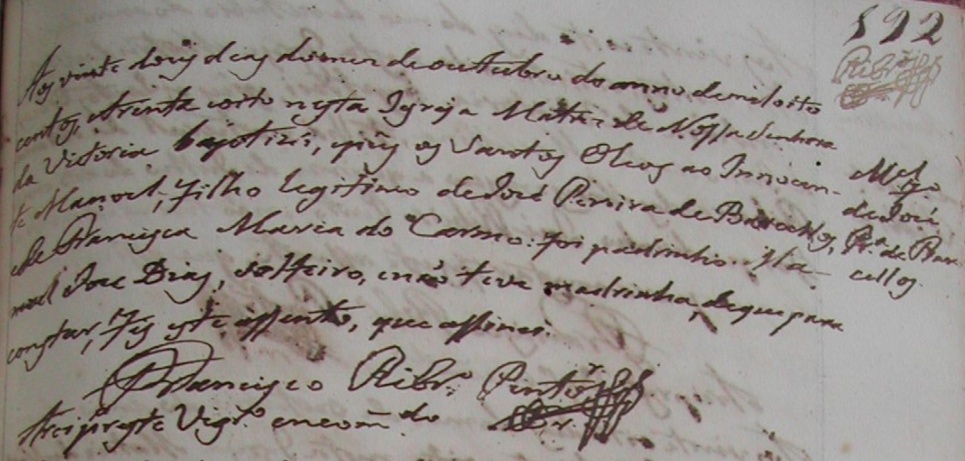 192
Ribrº
Aos vinte douz dias do mez de outubro do anno de mil oito
centos, etrinta eoito nesta Igreja Matriz de Nossa Senhora
da Victoria baptizei, epuz os Santos Oleos ao Innocen-
te Manoel, filho legitimo de José Pereira de Barcellos,
e de Francisca Maria do Carmo: foi padrinho Ma-
noel José Dias, solteiro, enão teve madrinha, deque para
constar, fiz este assento, que assinei.
Francisco Ribrº Pinto
Arcipreste Vigrº encomdo
Mel fº
de José
Prª de Bar-
cellos